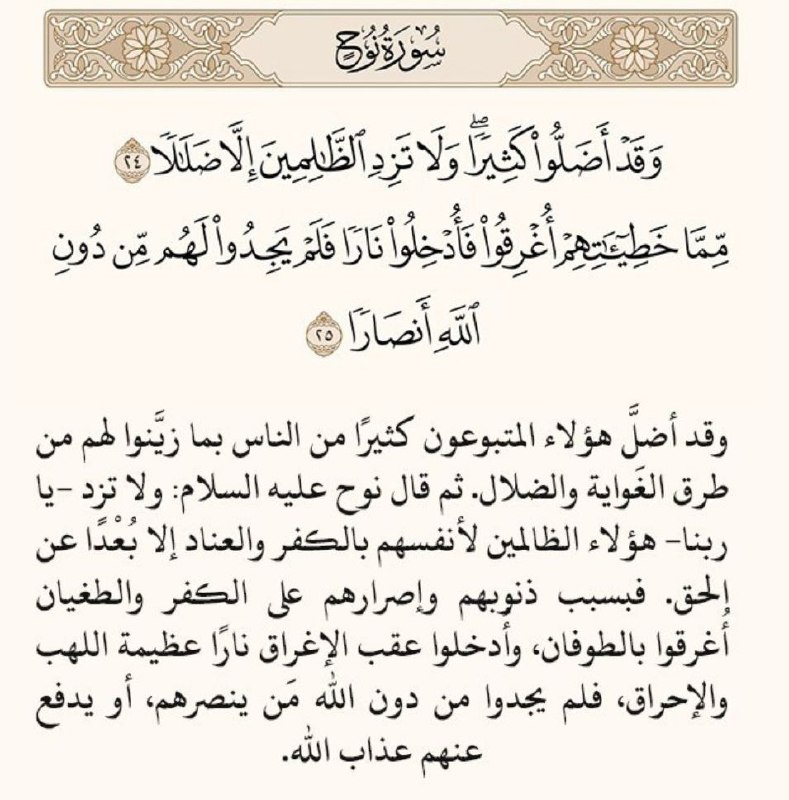 سُورَةُ نُوحٍ
وَقَدۡ أَضَلُّواْ كَثِيرٗاۖ وَلَا تَزِدِ ٱلظَّٰلِمِينَ إِلَّا ضَلَٰلٗا ٢٤
مِّمَّا خَطِيٓـَٰٔتِهِمۡ أُغۡرِقُواْ فَأُدۡخِلُواْ نَارٗا فَلَمۡ يَجِدُواْ لَهُم مِّن دُونِ
ٱللَّهِ أَنصَارٗا ٢٥
وقد أضلَّ هؤلاء المتبوعون كثيرًا من الناس بما زيَّنوا لهم من
طرق الغَواية والضلال. ثم قال نوح عليه السلام: ولا تزد -يا
ربنا- هؤلاء الظالمين لأنفسهم بالكفر والعناد إلا بُعْدًا عن
الحق. فبسبب ذنوبهم وإصرارهم على الكفر والطغيان
أُغرقوا بالطوفان، وأُدخلوا عقب الإغراق نارًا عظيمة اللهب
والإحراق، فلم يجدوا من دون الله مَن ينصرهم، أو يدفع
عنهم عذاب الله.